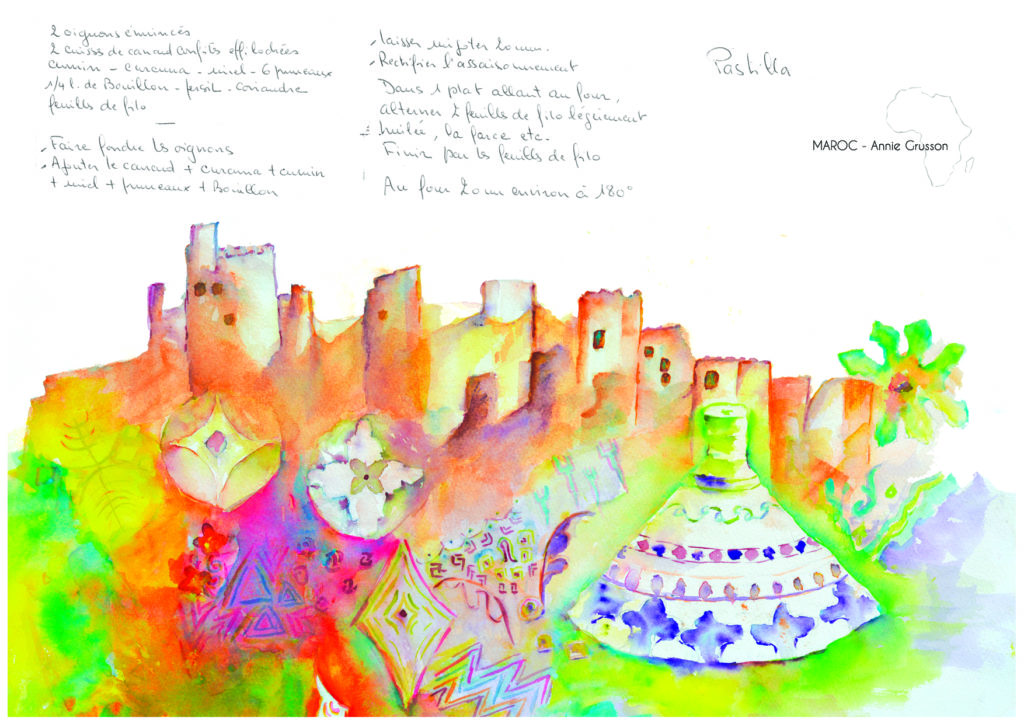 2 oignons émincés
2 cuisses de canard confites effilochées
cumin - curcuma - miel - 6 pruneaux
1/4 l. de Bouillon - persil - coriandre
feuilles de filo
- Faire fondre les oignons
- Ajouter le canard + curcuma + cumin
+ miel + pruneaux + Bouillon
- laisser mijoter 20 mn.
- Rectifier l'assaisonnement
Dans 1 plat allant au four,
alterner 2 feuilles de filo légèrement
huilée, la farce etc.
Finir par les feuilles de filo
Au four 20 mn environ à 180°
Pastilla
MAROC - Annie Grusson